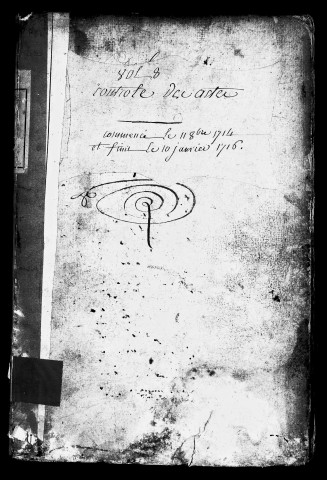 vol 8
controle des actes
commencé le 11 8bre 1714
et finit le 10 janvier 1716.